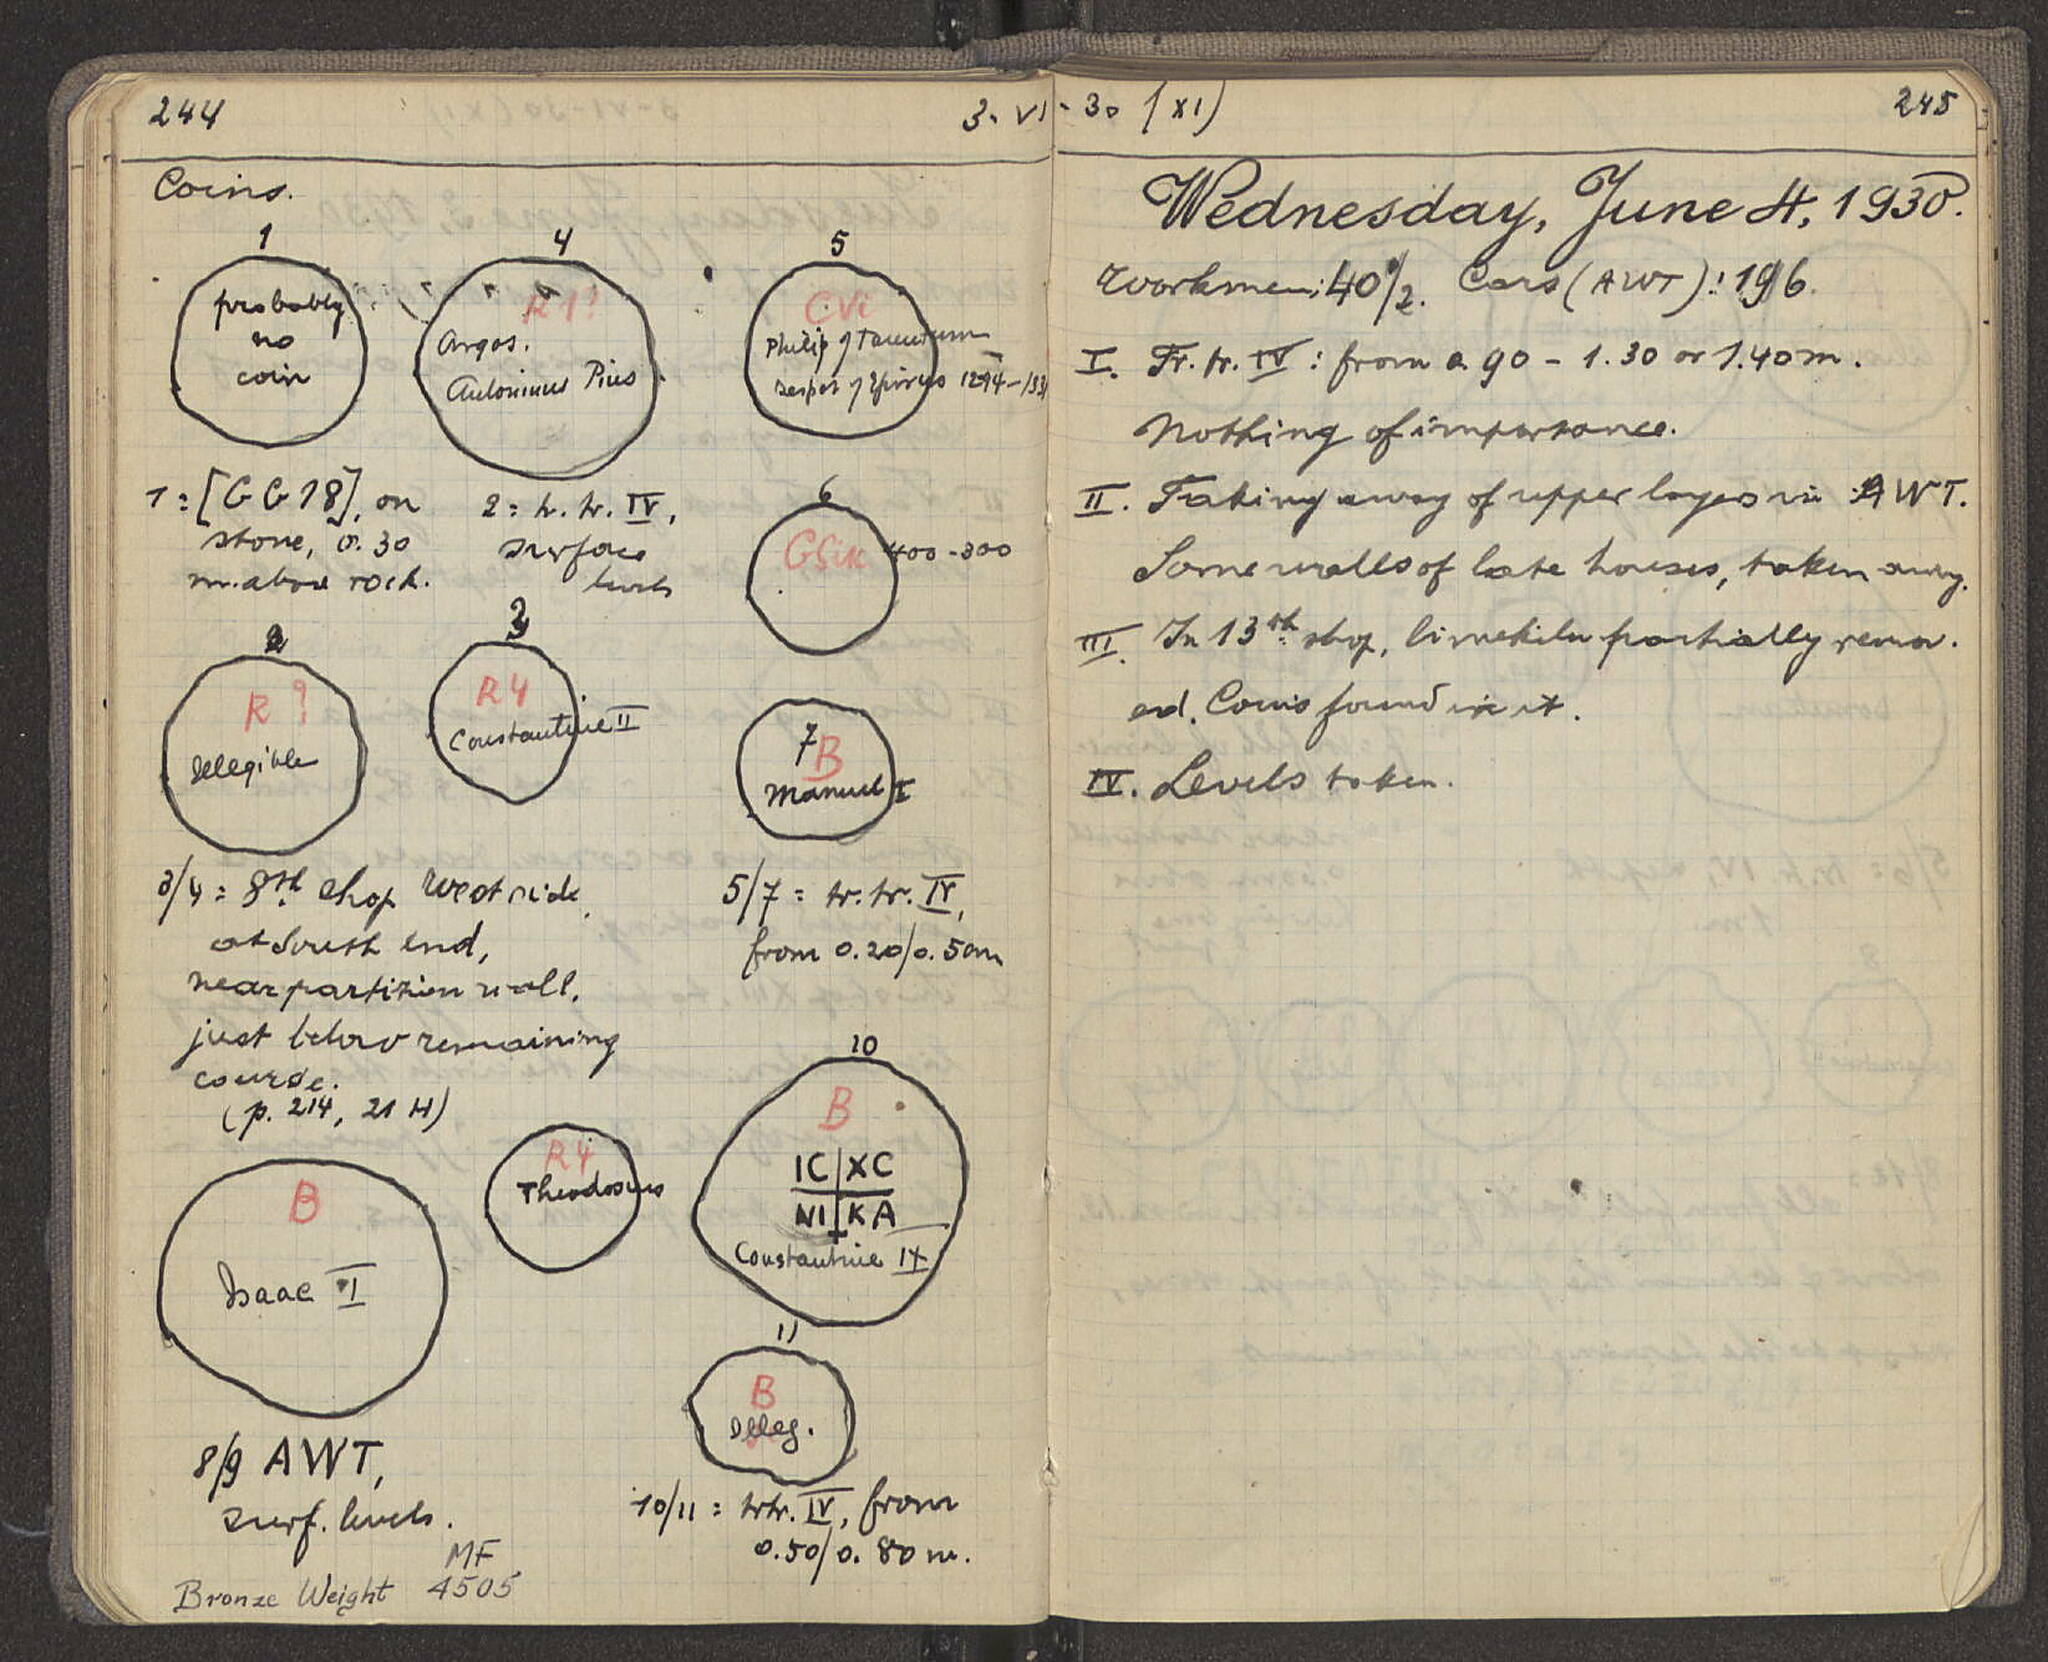 244
3-VI-30 (XI)
245
Coins.
1
probably
no
coin
4
R1?
Argos.
Antoninus Pius
5
CVi
Philip of Tarentum
Despot of Epirus 1294-133
1 = [GG18], on
stone, 0.30
m. above rock.
2 = tr. tr. IV,
surface
levels
6
GSik 400-300
2
R?
Illegible
3
R4
Constantine II
7
B
Manuel I
3/4 = 8th shop West side,
at South end,
near partition wall,
just below remaining
course.
(p. 214, 21 H)
5/7 = tr. tr. IV,
from 0.20/0.50m
B
Isaac I
R4
Theodosius
10
B
IC XC
NI KA
Constantine IX
11
B
Illeg.
8/9 AWT,
surf. levels.
10/11 = tr tr. IV, from
0.50/0.80 m.
MF
Bronze Weight 4505
Wednesday, June 4, 1930.
Workmen: 40/2. Cars (AWT): 196.
I. Tr. tr. IV: from 0.90 - 1.30 or 1.40 m.
Nothing of importance.
II. Taking away of upper layers in AWT.
Some walls of late houses, taken away.
III. In 13th shop, limekiln partially remov-
ed. Coins found in it.
IV. Levels taken.